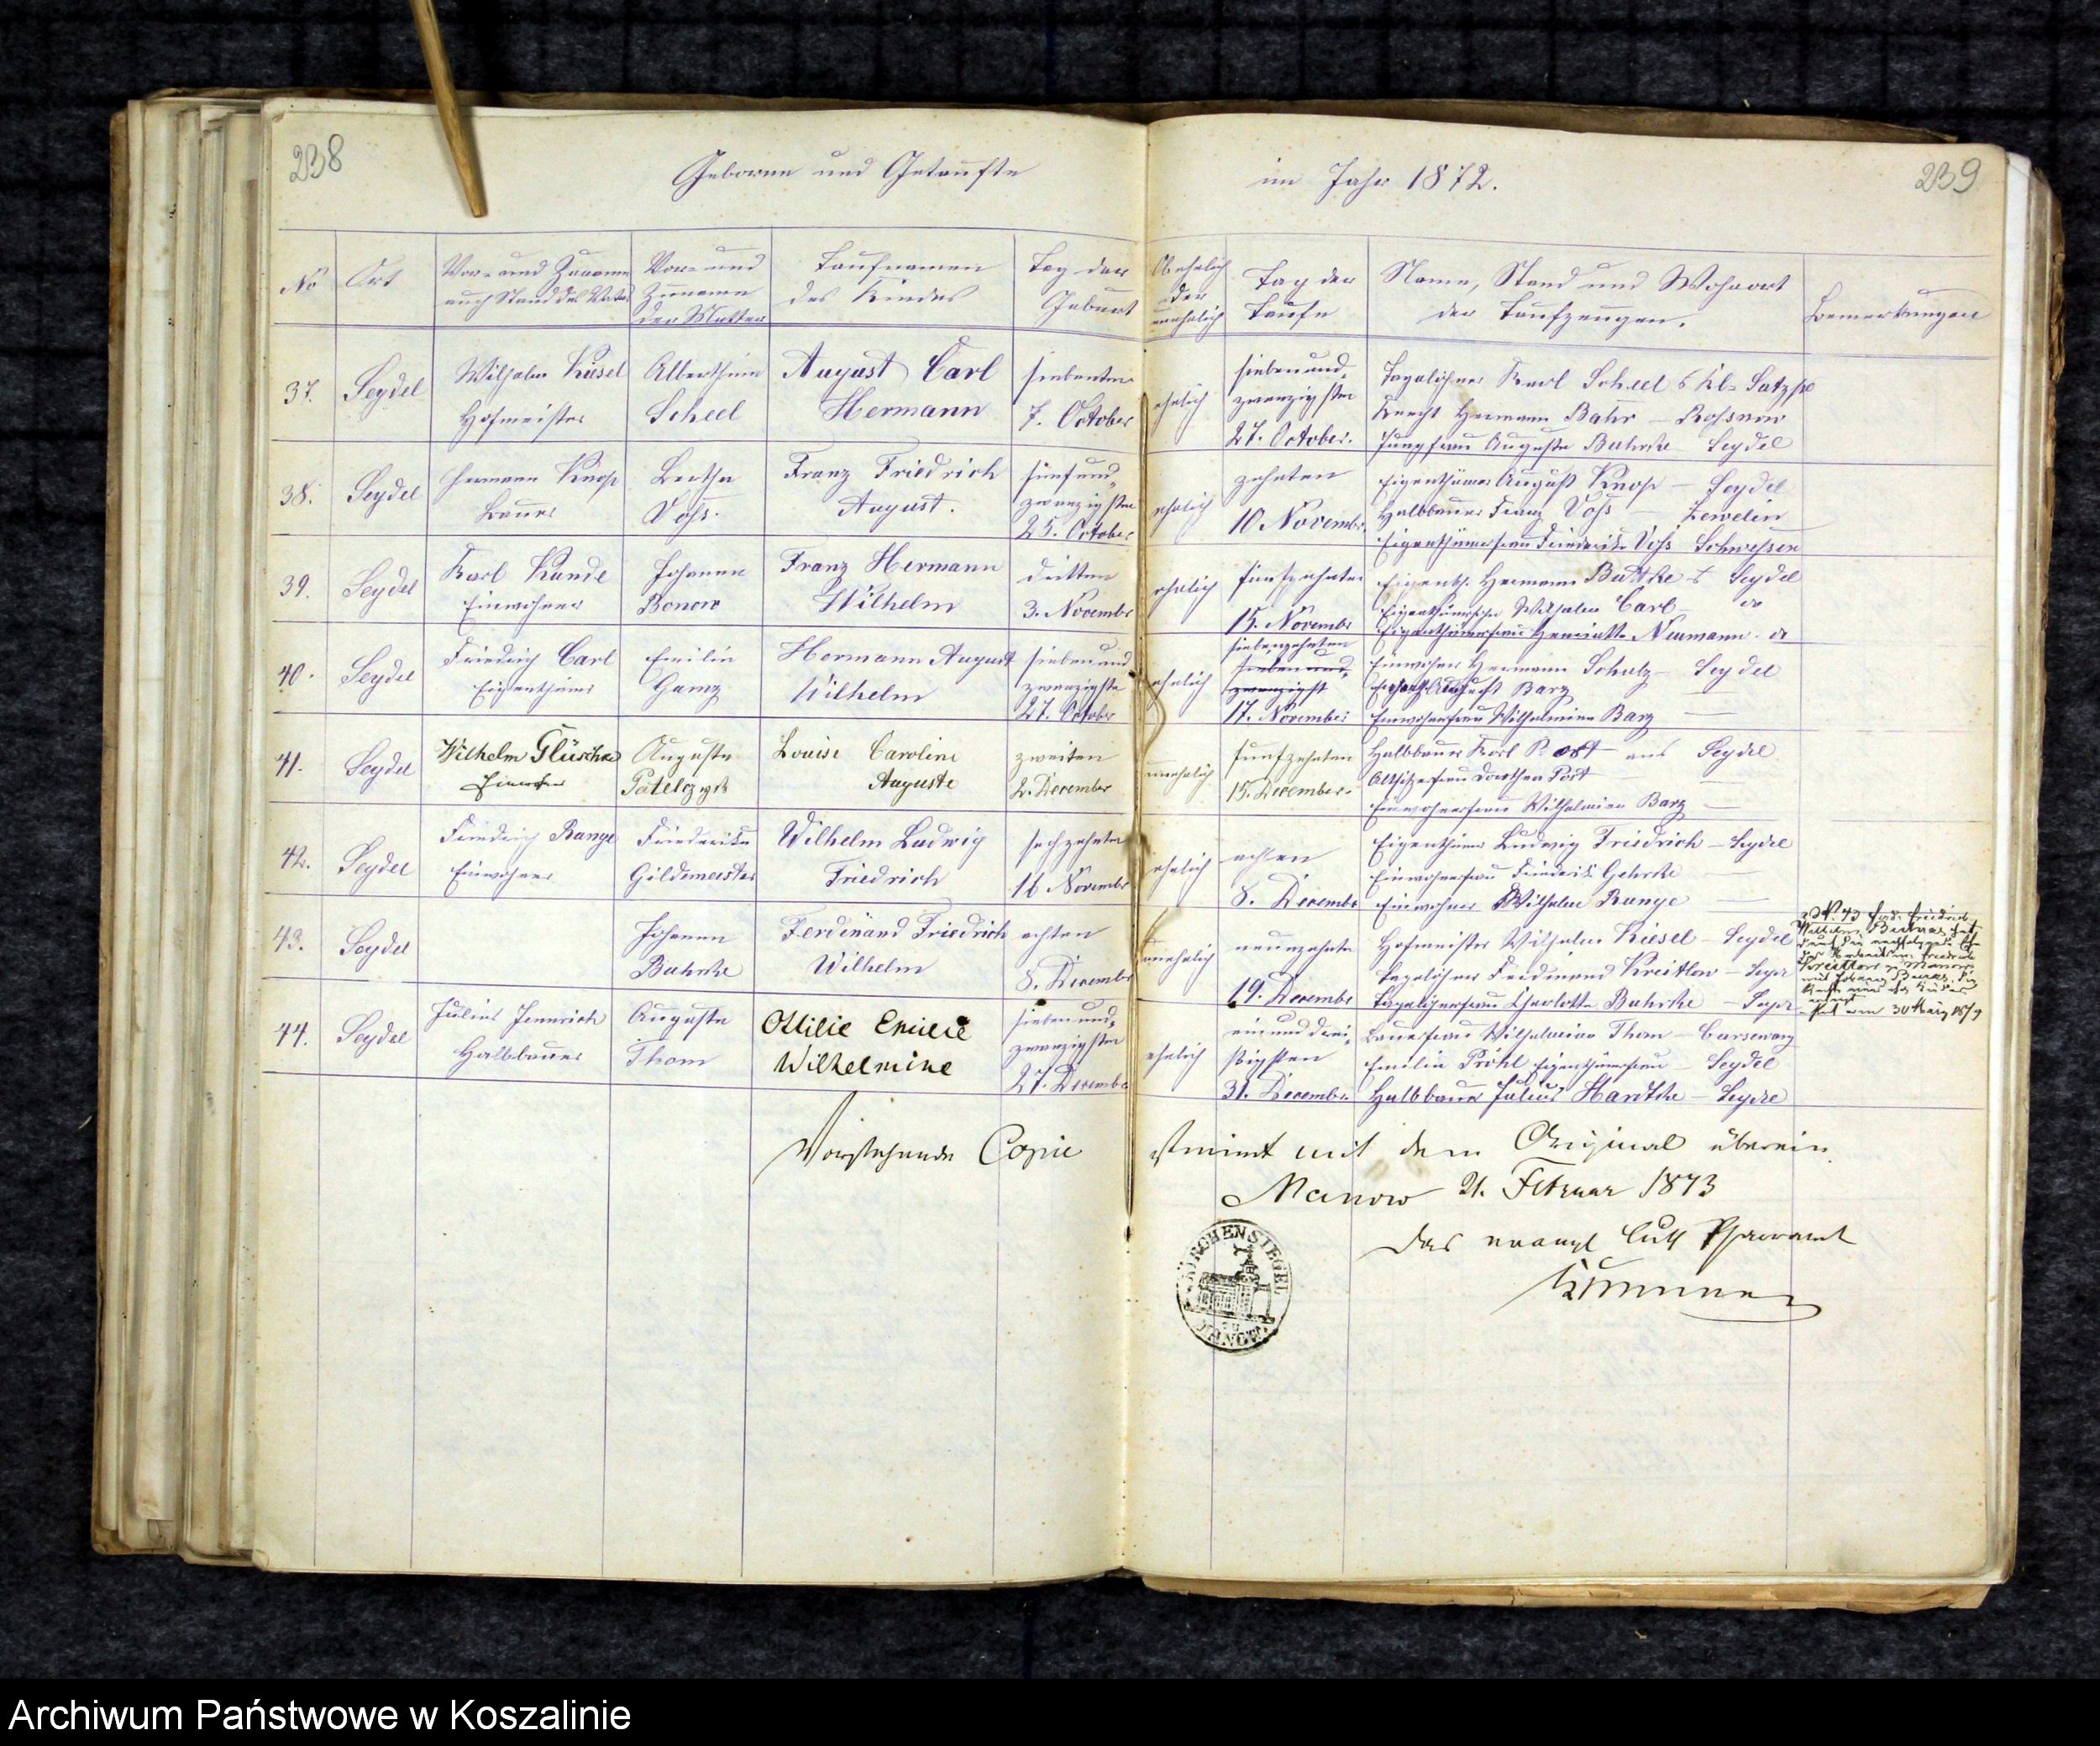 238
Geborene und Getaufte
im Jahr 1872.
239
No
Ort
Vor- und Zuname
auch Stand des Vaters
Vor- und
Zuname
der Mutter
Taufnamen
des Kindes
Tag der
Geburt
Ob ehelich
oder
unehelich
Tag der
Taufe
Name, Stand und Wohnort
der Taufzeugen.
Bemerkungen
37.
Seydel
Wilhelm Kusel
Hofmeister
Albertine
Scheel
August Carl
Hermann
siebenten
7. October
ehelich
siebenund-
zwanzigsten
27. October.
Tagelöhner Karl Scheel Kl. Satzpe
Knecht Hermann Bahr – Rossnow
Jungfrau Auguste Buhrke Seydel
38.
Seydel
Hermann Knop
Bauer
Bertha
Voss.
Franz Friedrich
August.
fünfund-
zwanzigsten
25. October
ehelich
zehnten
10 Novembr.
Eigenthümer August Knop – Seydel
Halbbauer Franz Voss – Zewelin
Eigenthümerfrau Friederike Voss Schwessin
39.
Seydel
Karl Kunde
Einwohner
Johanne
Bonow
Franz Hermann
Wilhelm
dritten
3. Novembr
ehelich
fünfzehnten
15. Novembr
Eigenth. Hermann Buttke Seydel
Wilhelm Carl do
Eigenthümerfrau Henriette Neumann. do
40.
Seydel
Friedrich Carl
Eigenthümer
Emilie
Gamz
Hermann August
Wilhelm
siebenund
zwanzigsten
27. Octobr
ehelich
siebenzehnten
siebenund-
zwanzigst
17. November
Einwohner Hermann Schulz – Seydel
August Barz
Einwohnerfrau Wilhelmine Barz —
41.
Seydel
Wilhelm Glüschke
Einwohner
Auguste
Louise Caroline
Auguste
zweiten
2. December
unehelich
fünfzehnten
15. December.
Halbbauer Karl Post aus Seydel
Altsitzerfrau Dorothea Post —
Einwohnerfrau Wilhelmine Barz —
42.
Seydel
Friedrich Range
Einwohner
Friederike
Gildemeister
Wilhelm Ludwig
Friedrich
sechzehnten
16 Novembr
ehelich
achten
8. Decembr
Eigenthümer Ludwig Friedrich – Seydel
Einwohnerfrau Friederik Gehrke —
Einwohner Wilhelm Runge —
43.
Seydel
Johanne
Buhrke
Ferdinand Friedrich
Wilhelm
achten
8. Decembr
unehelich
neunzehnten
19. Decembr
Hofmeister Wilhelm Kusel – Seydel
Tagelöhner Ferdinand Kreitlow –
Tagelöhnerfrau Charlotte Buhrke –
ad No. 43 Ferd. Friedrich
Wilhelm
durch die nachfolgende
des Friedrich
Kreitlow Manow
mit Johanne
30 März 1879
44.
Seydel
Julius Jennrich
Halbbauer
Auguste
Thom
Ottilie Emilie
Wilhelmine
siebenund-
zwanzigsten
27. Decembr
ehelich
einunddrei-
ssigsten
31. Decembr.
Bauerfrau Wilhelmine Thom – Curswanz
Emilie Pröhl Eigenthümerfrau – Seydel
Halbbauer Julius Hardtke – Seydel
Vorstehende Copie stimmt mit dem Original überein
Manow 21. Februar 1873
Das evangl luth Pfarramt
KIRCHENSIEGEL
ZU
MANOW
Archiwum Państwowe w Koszalinie